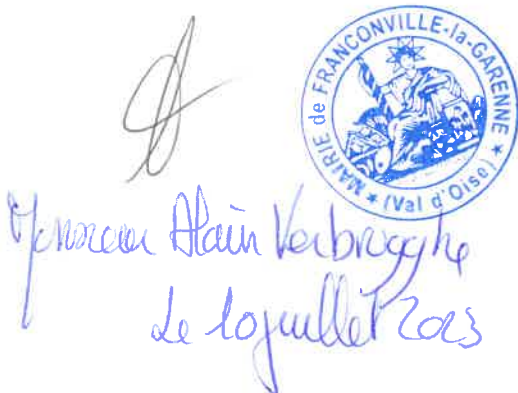 MAIRIE de FRANCONVILLE-la-GARENNE
★ (Val d'Oise) ★
Monsieur Alain Verbrugghe
Le 10 juillet 2023